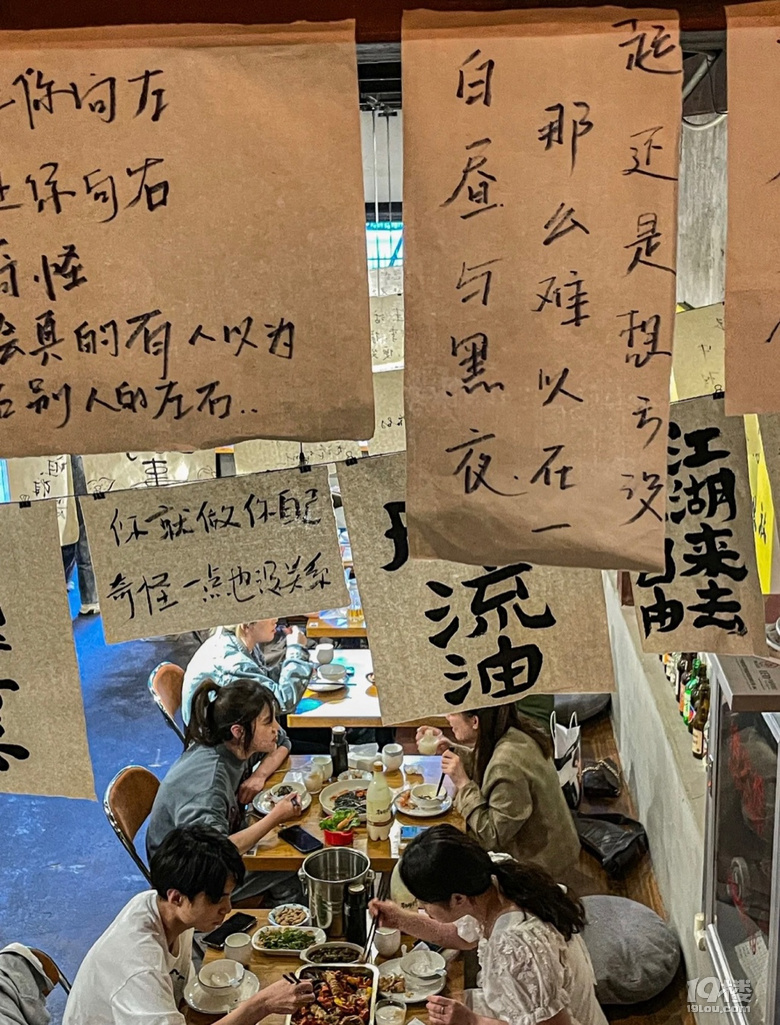 你向左
你向右
奇怪
真的有人以为
别人的左右..
白昼与黑夜
那么难以在一
起还是想亏没
事
你就做你自己
奇怪一点也没关系
流油
江湖来去
自由
19楼
19lou.com